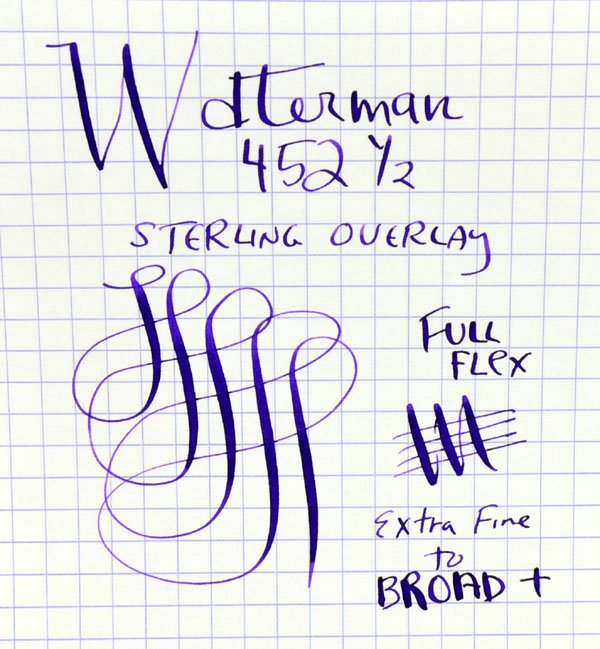 Waterman
452 1/2
STERLING OVERLAY
FULL
FLEX
Extra Fine
to
BROAD +